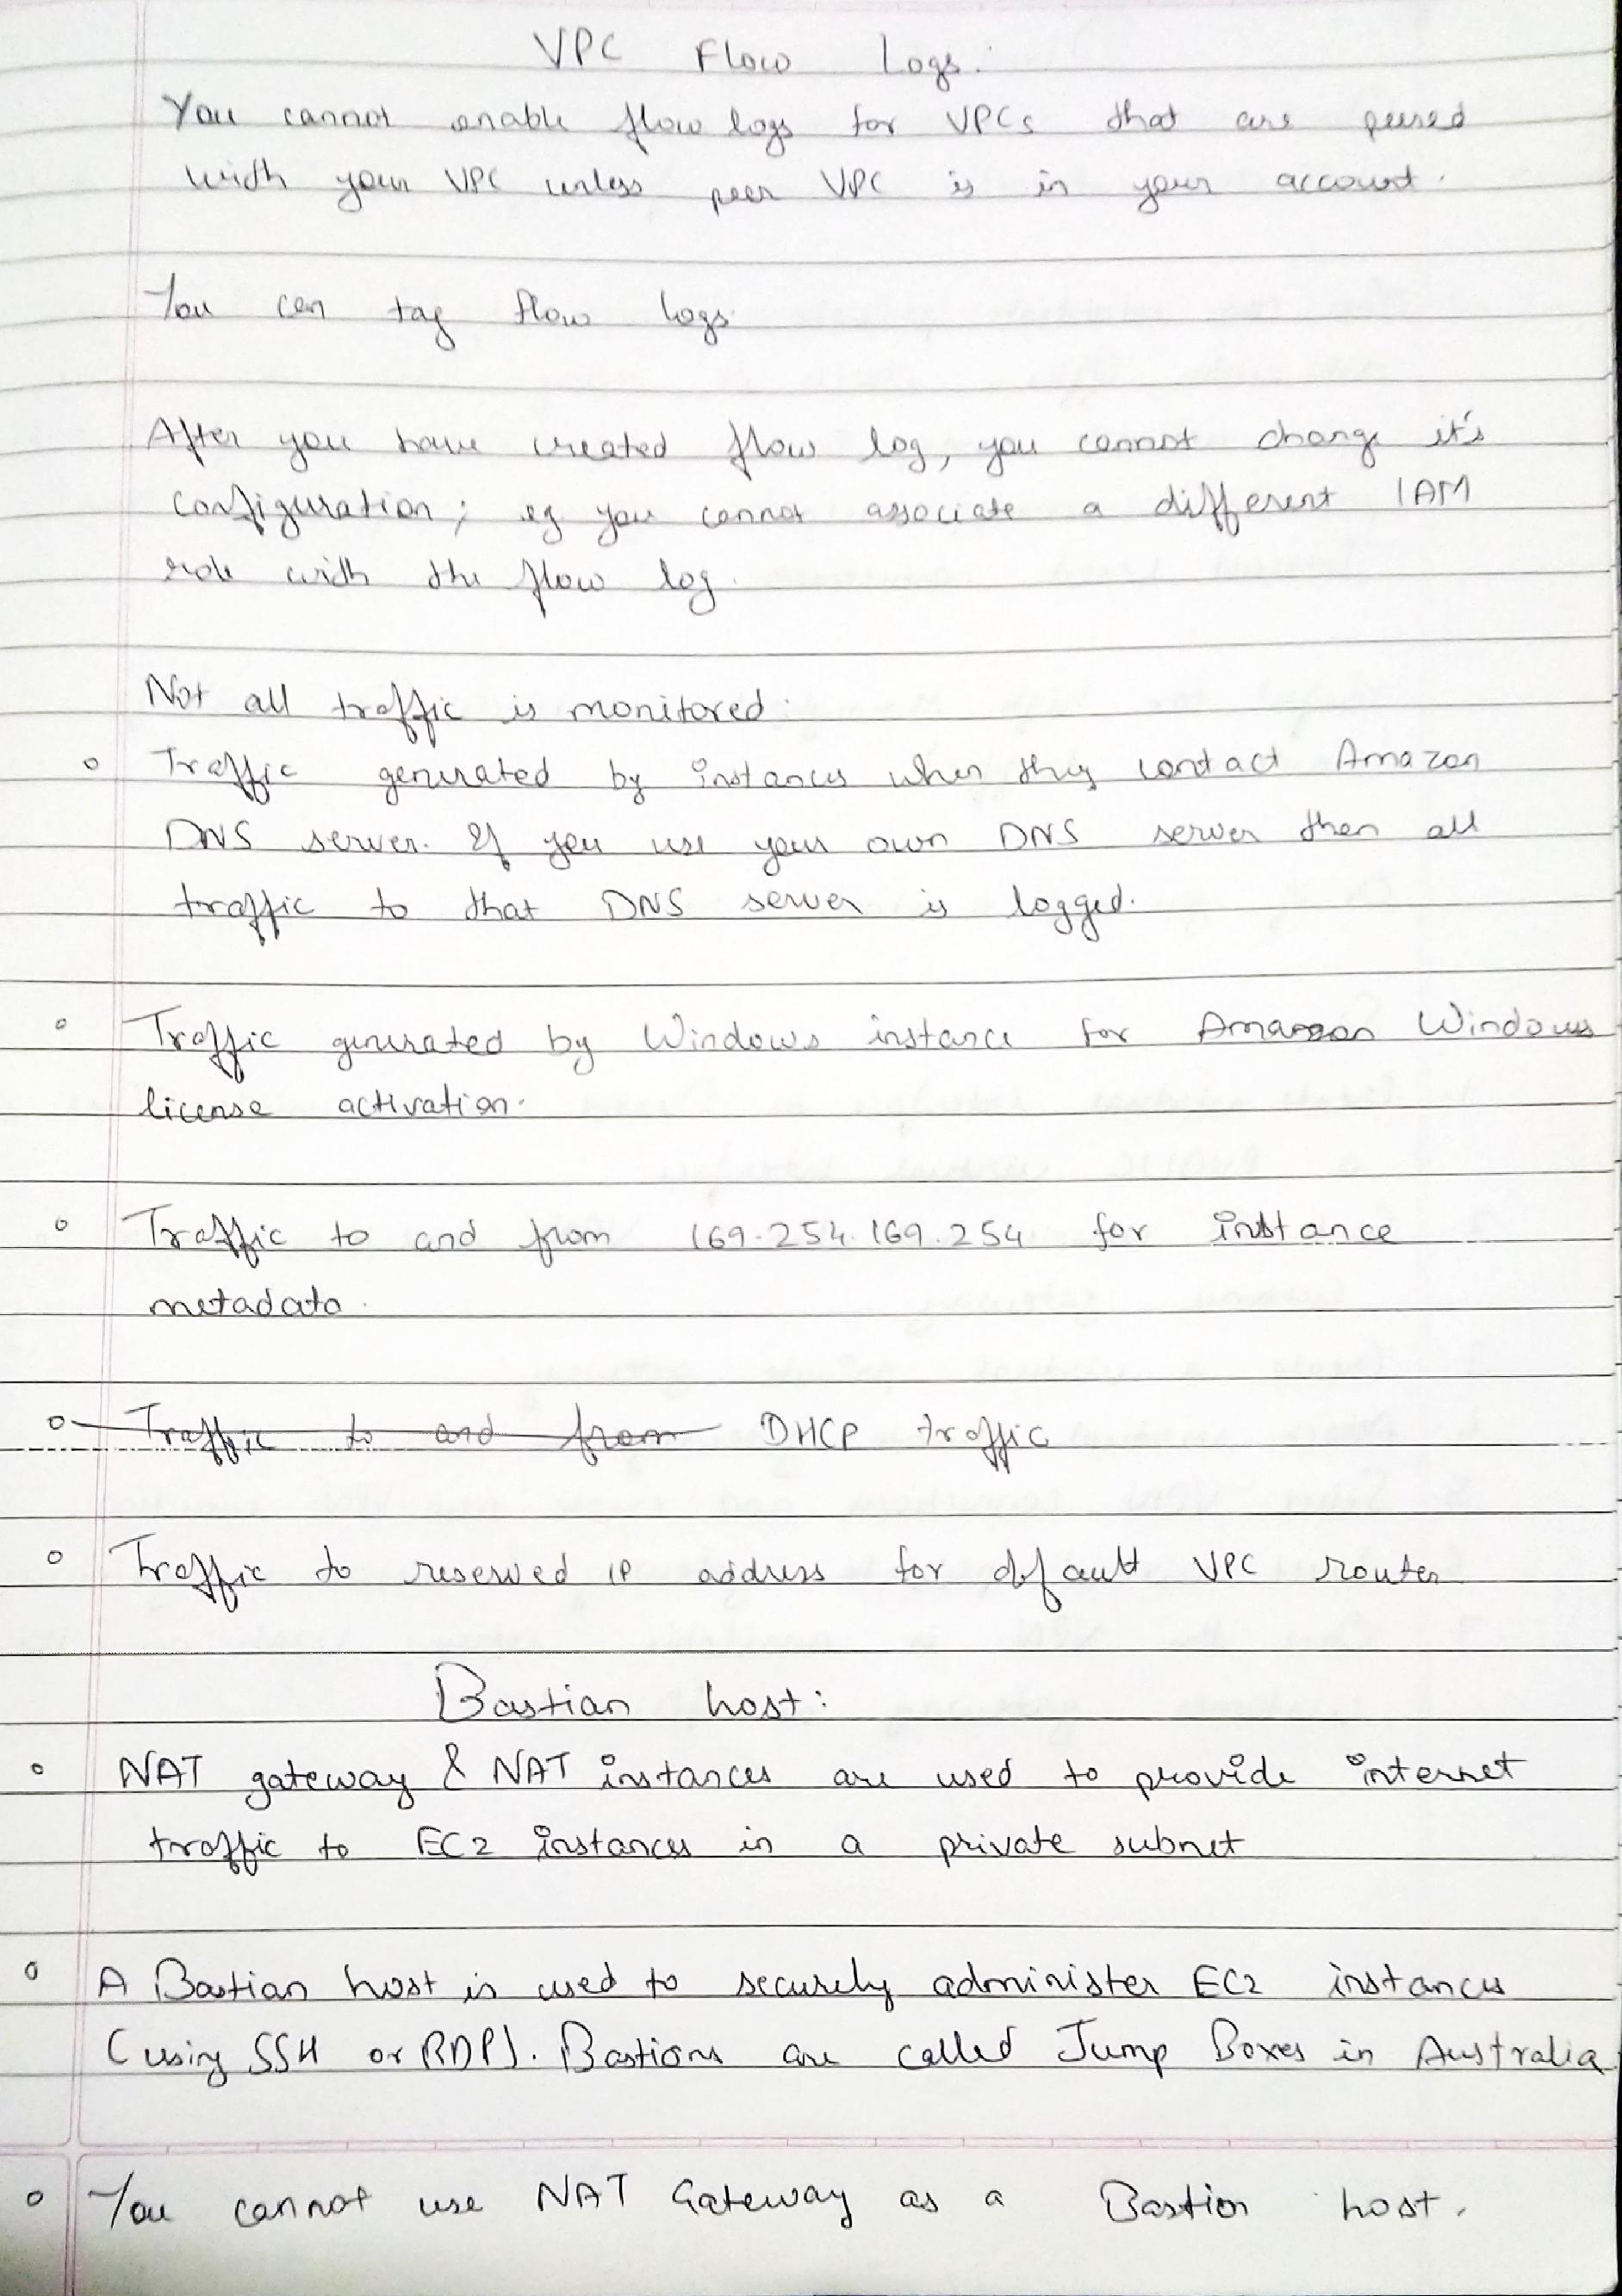 VPC Flow Logs.
You cannot enable flow logs for VPCs that are peered
with your VPC unless peer VPC is in your account.
You can tag flow logs.
After you have created flow log, you cannot change it's
configuration; eg you cannot associate a different IAM
role with the flow log.
Not all traffic is monitored:
◦ Traffic generated by instances when they contact Amazon
DNS server. If you use your own DNS server then all
traffic to that DNS server is logged.
◦ Traffic generated by Windows instance for Amazon Windows
license activation.
◦ Traffic to and from 169.254.169.254 for instance
metadata.
◦ Traffic to and from DHCP traffic
◦ Traffic to reserved IP address for default VPC router
Bastian host:
◦ NAT gateway & NAT instances are used to provide internet
traffic to EC2 instances in a private subnet
◦ A Bastian host is used to securely administer EC2 instances
(using SSH or RDP). Bastions are called Jump Boxes in Australia
◦ You cannot use NAT Gateway as a Bastion host.